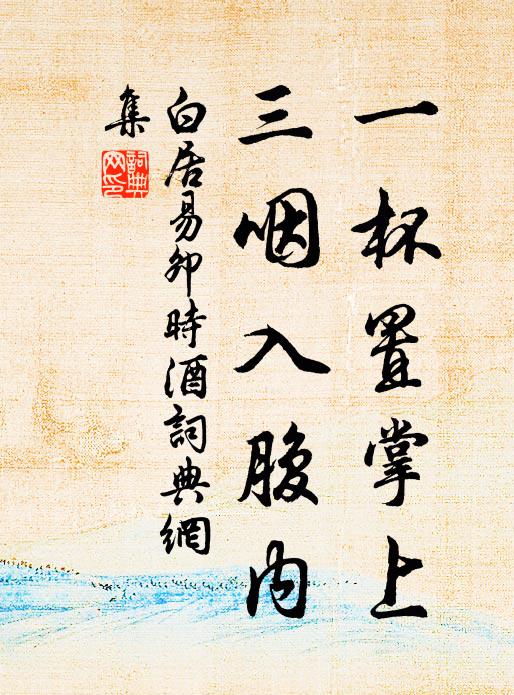 一杯置掌上
三咽入腹内
白居易卯時酒詞典網
集
詞典
网印